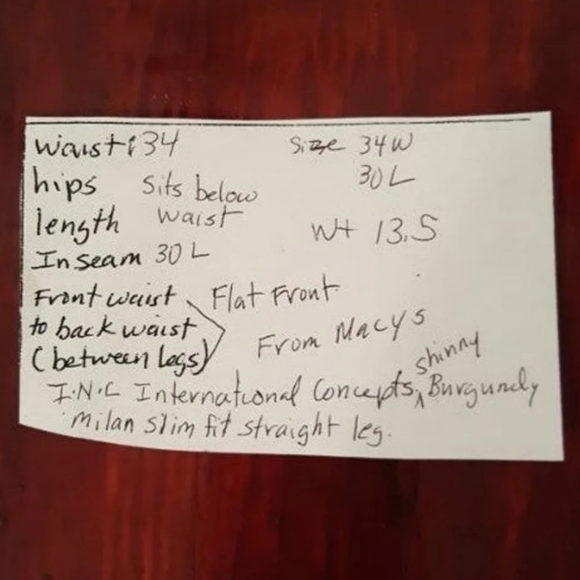 waist: 34 Size 34W
hips Sits below 30L
length waist
Inseam 30L Wt 13.5
Front waist Flat Front
to back waist
(between legs) From Macys
I.N.C International Concepts, shinny Burgundy
milan slim fit straight leg.